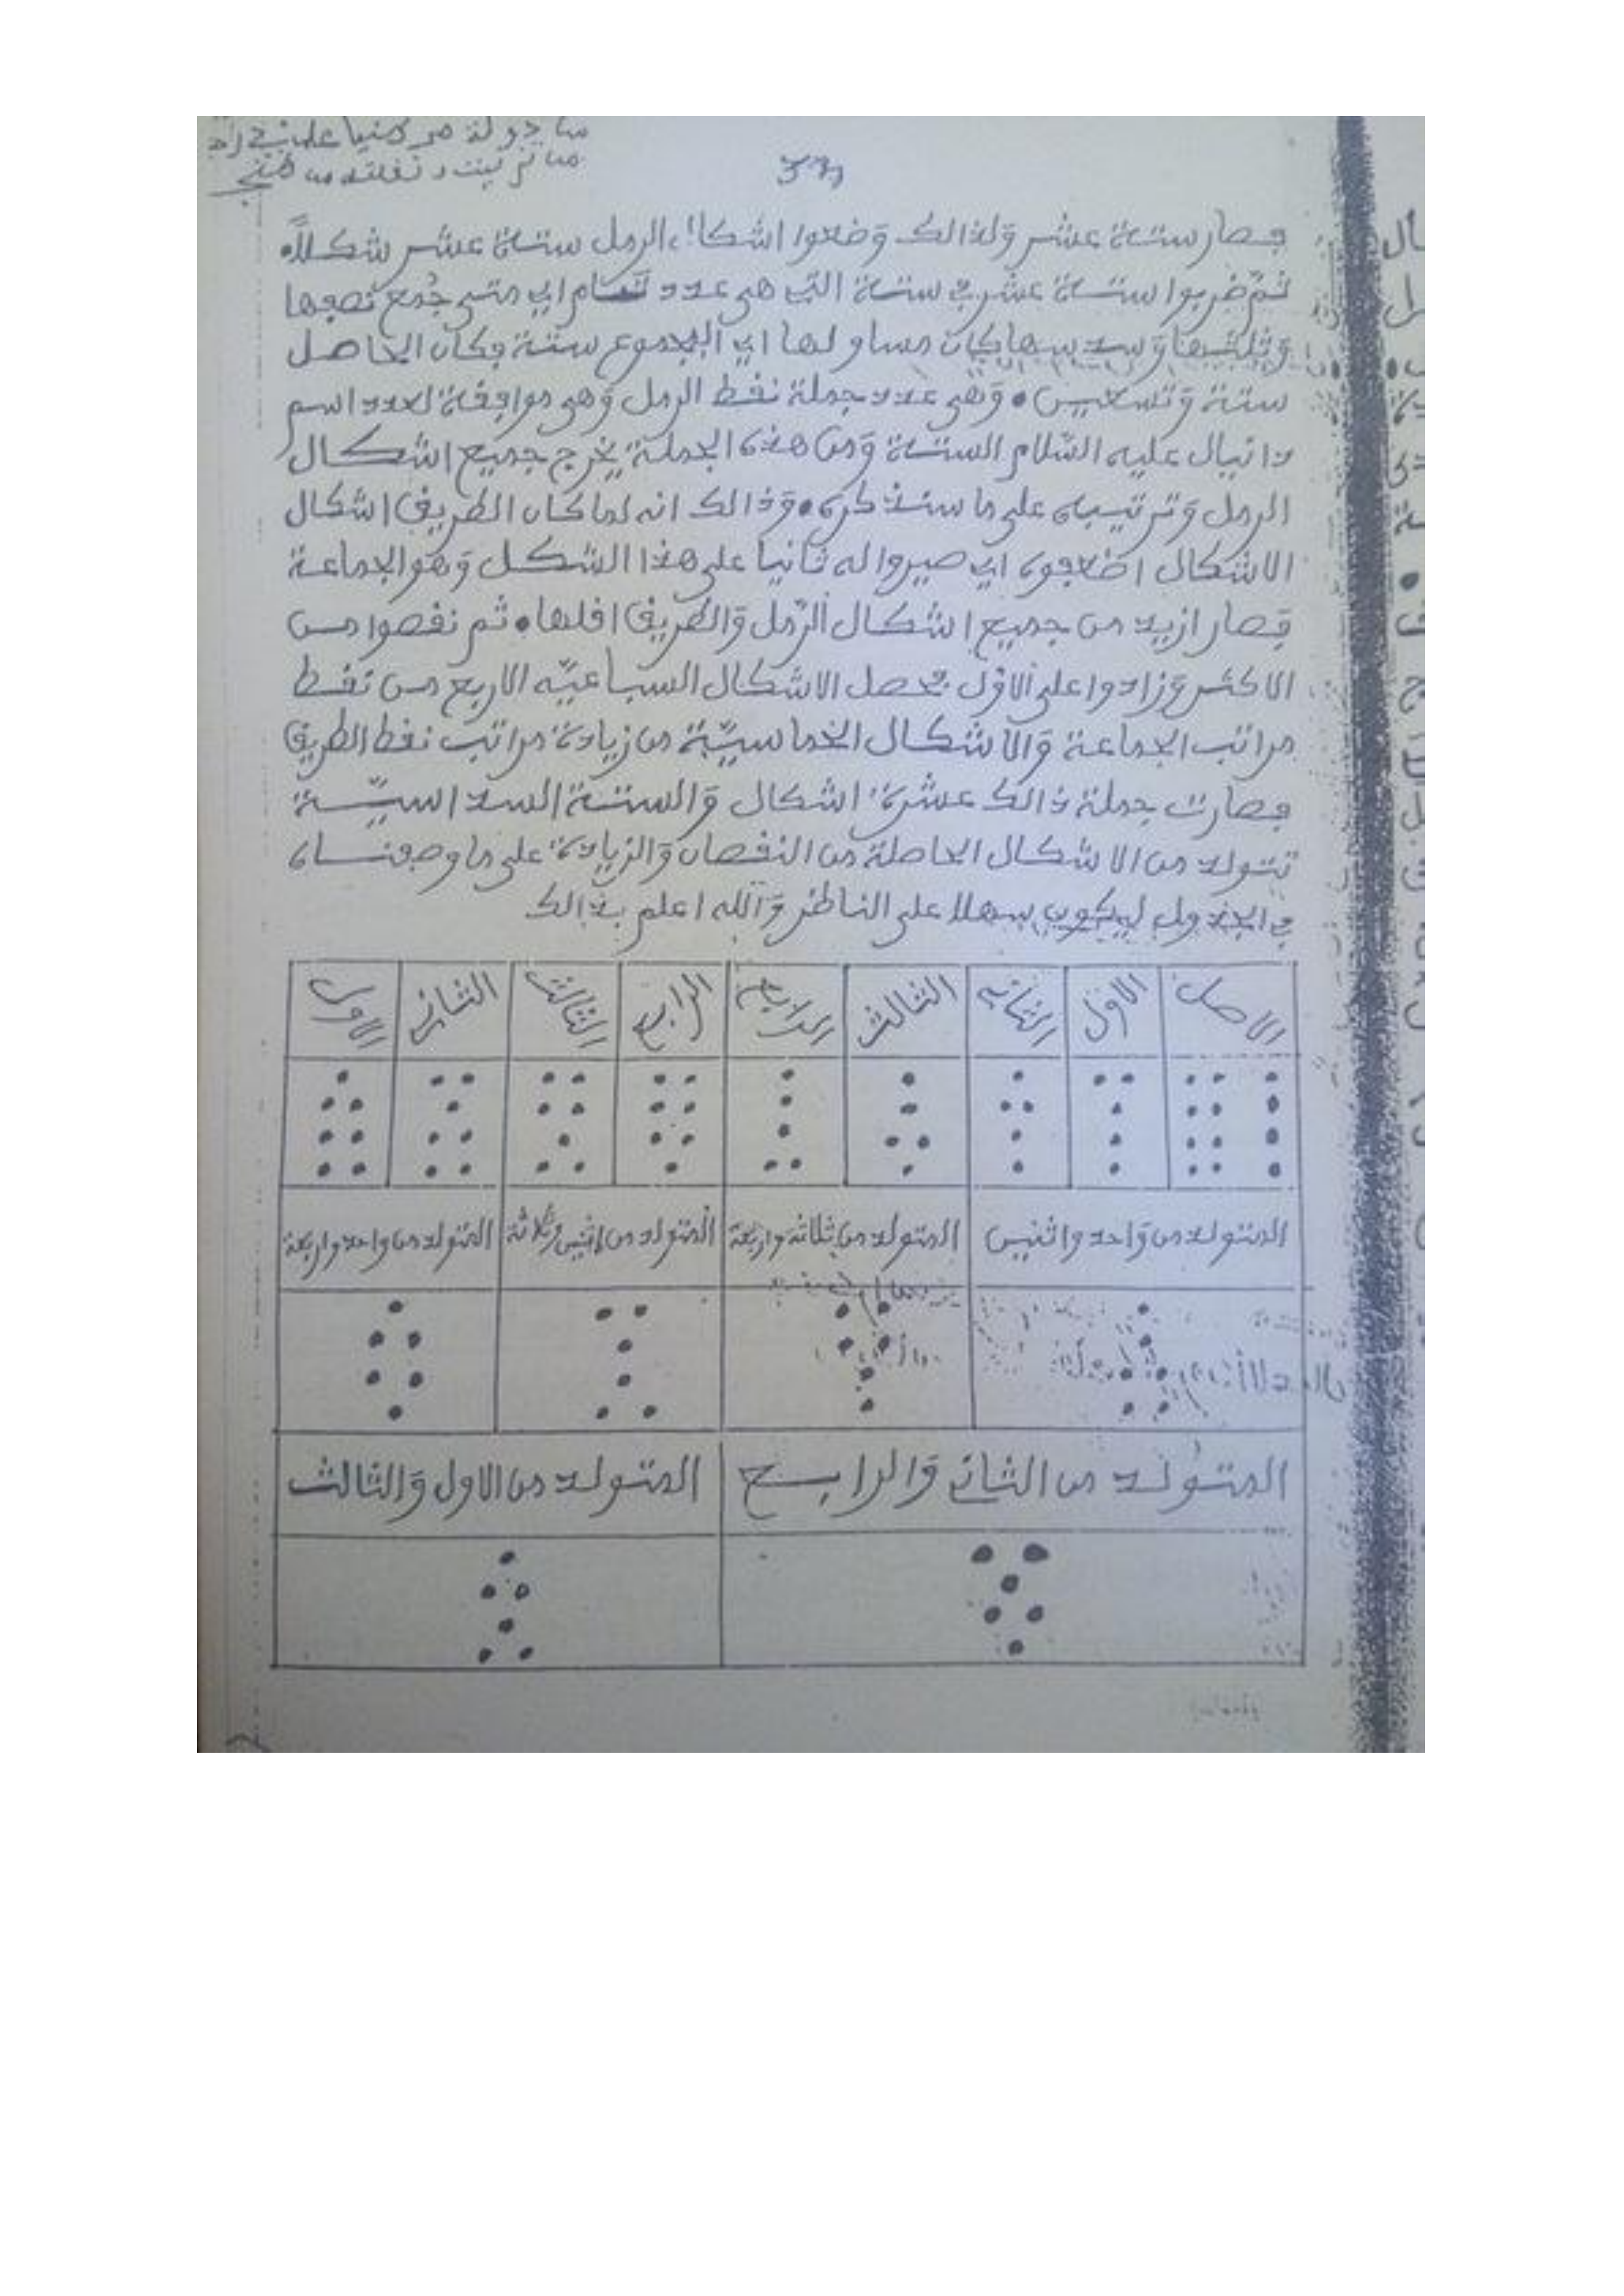 فصار ستة عشر وَلذالك وَضعوا اشكال الرمل ستة عشر شكلاً
ثمّ ضربوا ستة عشر في ستة التي هي عدد تام اي متى جُمع نصفها
وَثلثها وَسدسها كان مساو لها اي المجموع ستة فكان الحاصل
ستة وَتسعين • وَهي عدد جملة نقط الرمل وَهي موافقة لعدد اسم
دانيال عليه السّلام الستة وَمن هذه الجملة يخرج جميع اشكال
الرمل وَترتيبه على ما سنذكره • وَذالك انه لما كان الطريق اشكال
الاشكال اضعفوه اي صيروا له ثانيا على هذا الشكل وَهو الجماعة
فصار ازيد من جميع اشكال الرّمل وَالطريق اقلها • ثم نقصوا من
الاكثر وَزادوا على الاوّل يحصل الاشكال السباعيّه الاربع من نقط
مراتب الجماعة وَالاشكال الخماسيّة من زيادة مراتب نقط الطريق
فصارت جملة ذالك عشرة اشكال وَالستة السداسيّة
تتولد من الاشكال الحاصلة من النقصان وَالزيادة على ما وصفناه
في الجدول ليكون سهلا على الناظر وَالله اعلم بذالك
الاصل الاوّل الثاني الثالث الرابع الرابع الثالث الثاني الاول
المتولد من وَاحد واثنين المتولد من ثلاثة واربعة المتولد من اثنين وثلاثة المتولد من واحد واربعة
المتولد من الثاني وَالرابع المتولد من الاول وَالثالث